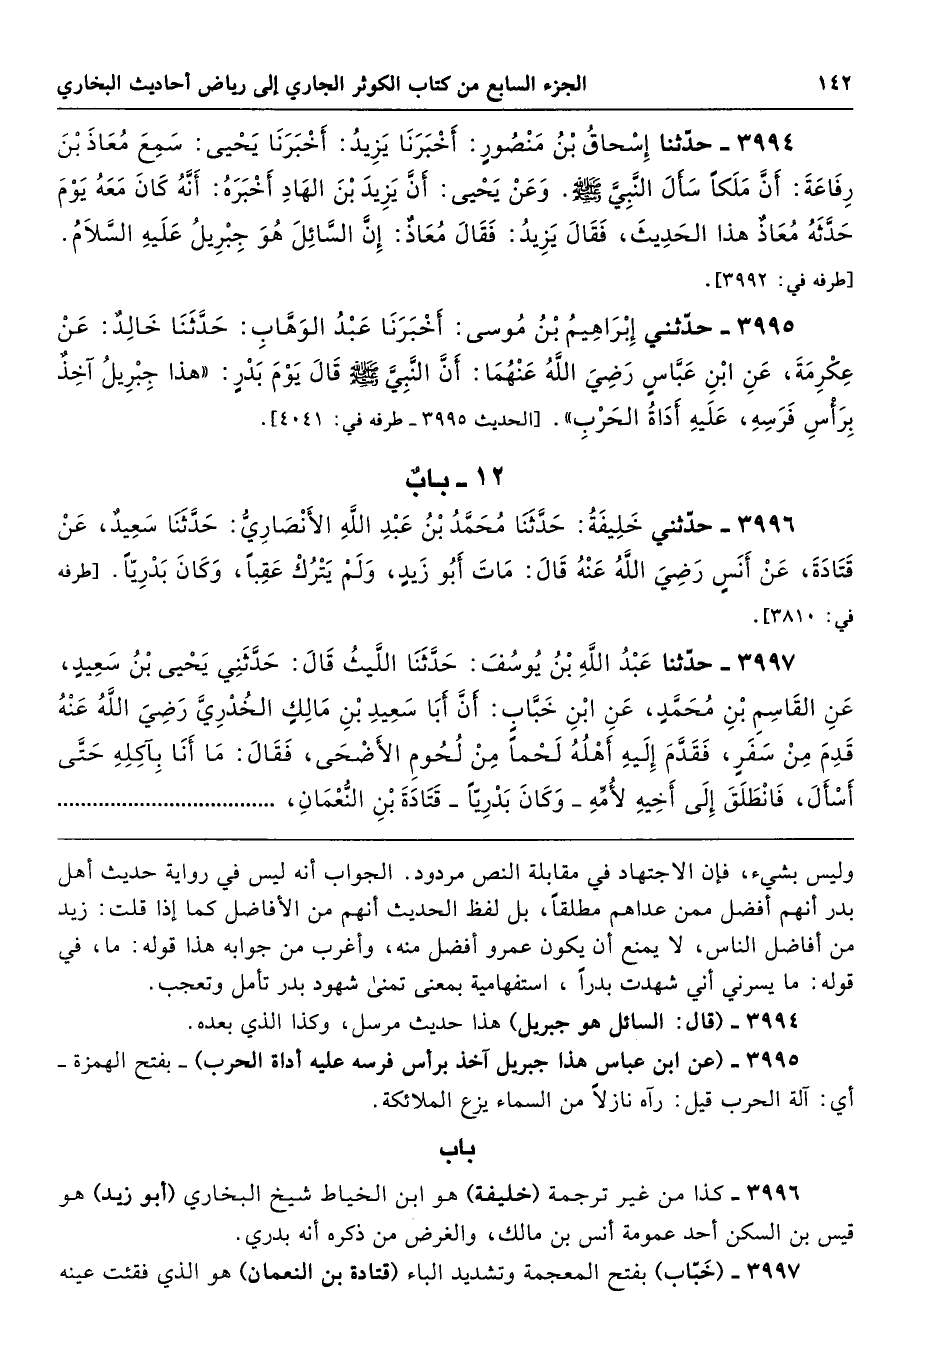 ١٤٢ الجزء السابع من كتاب الكوثر الجاري إلى رياض أحاديث البخاري
٣٩٩٤ ـ حدّثنا إِسْحاقُ بْنُ مَنْصُورٍ: أَخْبَرَنَا يَزِيدُ: أَخْبَرَنَا يَحْيى: سَمِعَ مُعَاذَ بْنَ
رِفَاعَةَ: أَنَّ مَلَكاً سَأَلَ النَّبِيَّ ﷺ. وَعَنْ يَحْيى: أَنَّ يَزِيدَ بْنَ الهَادِ أَخْبَرَهُ: أَنَّهُ كَانَ مَعَهُ يَوْمَ
حَدَّثَهُ مُعَاذٌ هذا الحَدِيثَ، فَقَالَ يَزِيدُ: فَقَالَ مُعَاذٌ: إِنَّ السَّائِلَ هُوَ جِبْرِيلُ عَلَيهِ السَّلاَمُ.
[طرفه في: ٣٩٩٢].
٣٩٩٥ ـ حدّثني إِبْرَاهِيمُ بْنُ مُوسى: أَخْبَرَنَا عَبْدُ الوَهَّابِ: حَدَّثَنَا خَالِدٌ: عَنْ
عِكْرِمَةَ، عَنِ ابْنِ عَبَّاسٍ رَضِيَ اللَّهُ عَنْهُمَا: أَنَّ النَّبِيَّ ﷺ قَالَ يَوْمَ بَدْرٍ: «هذا جِبْرِيلُ آخِذٌ
بِرَأْسِ فَرَسِهِ، عَلَيهِ أَدَاةُ الحَرْبِ». [الحديث ٣٩٩٥ ـ طرفه في: ٤٠٤١].
١٢ ـ بابٌ
٣٩٩٦ ـ حدّثني خَلِيفَةُ: حَدَّثَنَا مُحَمَّدُ بْنُ عَبْدِ اللَّهِ الأَنْصَارِيُّ: حَدَّثَنَا سَعِيدٌ، عَنْ
قَتَادَةَ، عَنْ أَنَسٍ رَضِيَ اللَّهُ عَنْهُ قَالَ: مَاتَ أَبُو زَيدٍ، وَلَمْ يَتْرُكْ عَقِباً، وَكَانَ بَدْرِيّاً. [طرفه
في: ٣٨١٠].
٣٩٩٧ ـ حدّثنا عَبْدُ اللَّهِ بْنُ يُوسُفَ: حَدَّثَنَا اللَّيثُ قَالَ: حَدَّثَنِي يَحْيى بْنُ سَعِيدٍ،
عَنِ القَاسِمِ بْنِ مُحَمَّدٍ، عَنِ ابْنِ خَبَّابٍ: أَنَّ أَبَا سَعِيدِ بْنِ مَالِكٍ الخُدْرِيَّ رَضِيَ اللَّهُ عَنْهُ
قَدِمَ مِنْ سَفَرٍ، فَقَدَّمَ إِلَيهِ أَهْلُهُ لَحْماً مِنْ لُحُومِ الأَضْحَى، فَقَالَ: مَا أَنَا بِآكِلِهِ حَتَّى
أَسْأَلَ، فَانْطَلَقَ إِلَى أَخِيهِ لأُمِّهِ ـ وَكَانَ بَدْرِيّاً ـ قَتَادَةَ بْنِ النُّعْمَانِ، .....................................
وليس بشيء، فإن الاجتهاد في مقابلة النص مردود. الجواب أنه ليس في رواية حديث أهل
بدر أنهم أفضل ممن عداهم مطلقاً، بل لفظ الحديث أنهم من الأفاضل كما إذا قلت: زيد
من أفاضل الناس، لا يمنع أن يكون عمرو أفضل منه، وأغرب من جوابه هذا قوله: ما، في
قوله: ما يسرني أني شهدت بدراً ، استفهامية بمعنى تمنىٰ شهود بدر تأمل وتعجب.
٣٩٩٤ ـ (قال: السائل هو جبريل) هذا حديث مرسل، وكذا الذي بعده.
٣٩٩٥ ـ (عن ابن عباس هذا جبريل آخذ برأس فرسه عليه أداة الحرب) ـ بفتح الهمزة ـ
أي: آلة الحرب قيل: رآه نازلاً من السماء يزع الملائكة.
باب
٣٩٩٦ ـ كذا من غير ترجمة (خليفة) هو ابن الخياط شيخ البخاري (أبو زيد) هو
قيس بن السكن أحد عمومة أنس بن مالك، والغرض من ذكره أنه بدري.
٣٩٩٧ ـ (خَبّاب) بفتح المعجمة وتشديد الباء (قتادة بن النعمان) هو الذي فقئت عينه